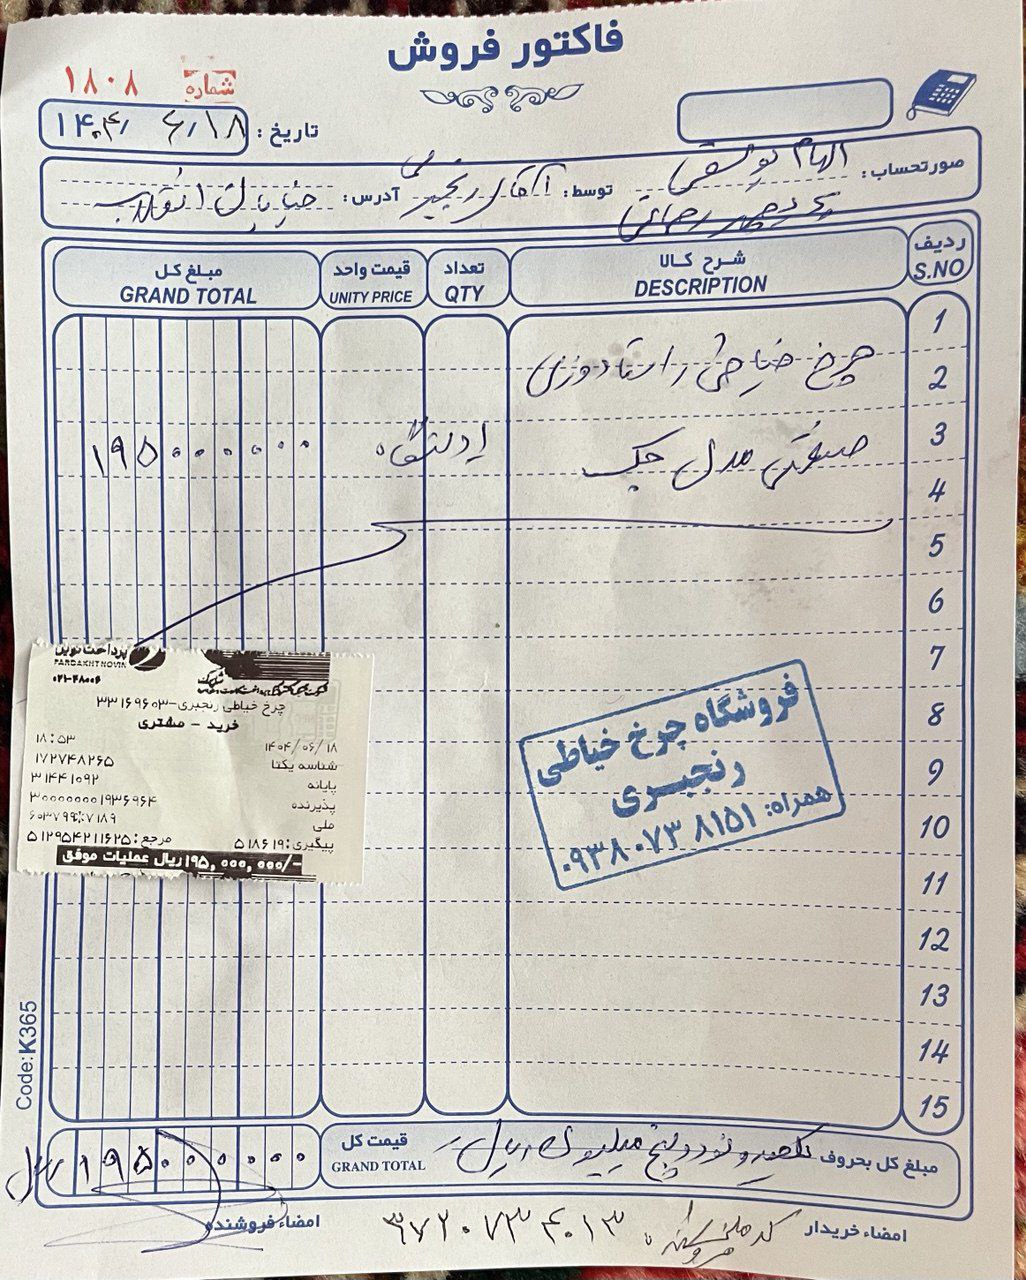 فاکتور فروش
شماره ۱۸۰۸
تاریخ : ۱۴۰۴/۶/۱۸
صورتحساب: الهام یوسفی توسط: آقای رنجبری آدرس: خیابان انقلاب
ردیف شرح کالا تعداد قیمت واحد مبلغ کل
S.NO DESCRIPTION QTY UNITY PRICE GRAND TOTAL
1
چرخ خیاطی راستادوزی
2
3 صنعتی مدل جک ۱ دستگاه ۱۹۵۰۰۰۰۰۰
4
5
6
7
8
9
10
11
12
13
14
15
پرداخت نوین
PARDAKHT NOVIN
۰۲۱-۴۸۰۰۶
چرخ خیاطی رنجبری-۳۳۱۶۹۶۰۳
خرید - مشتری
۱۴۰۴/۰۶/۱۸ ۱۸:۵۳
شناسه یکتا ۱۷۲۷۴۸۲۶۵
پایانه ۳۱۴۴۱۰۹۲
پذیرنده ۳۰۰۰۰۰۰۰۱۹۳۶۹۶۴
ملی
پیگیری: ۵۱۸۶۱۹ مرجع: ۵۱۲۹۵۴۲۱۱۶۲۵
۱۹۵,۰۰۰,۰۰۰/- ریال عملیات موفق
فروشگاه چرخ خیاطی
رنجبری
همراه: ۰۹۳۸۰۷۳۸۱۵۱
Code:K365
مبلغ کل بحروف یکصد و نود و پنج میلیون ریال قیمت کل ۱۹۵۰۰۰۰۰۰ ریال
GRAND TOTAL
امضاء خریدار کد ملی ۳۷۲۰۷۳۴۰۱۳ امضاء فروشنده